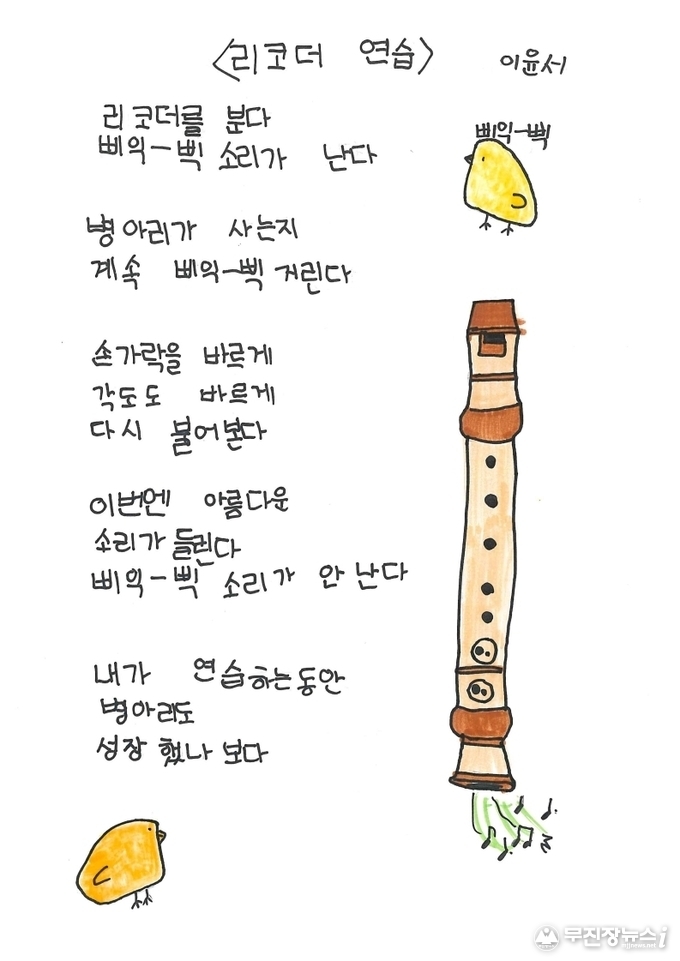 <리코더 연습>
이윤서
리코더를 분다
삐익-삑 소리가 난다
삐익-삑
병아리가 사는지
계속 삐익-삑 거린다
손가락을 바르게
각도도 바르게
다시 불어본다
이번엔 아름다운
소리가 들린다
삐익-삑 소리가 안 난다
내가 연습하는동안
병아리도
성장 했나 보다
무진장뉴스i